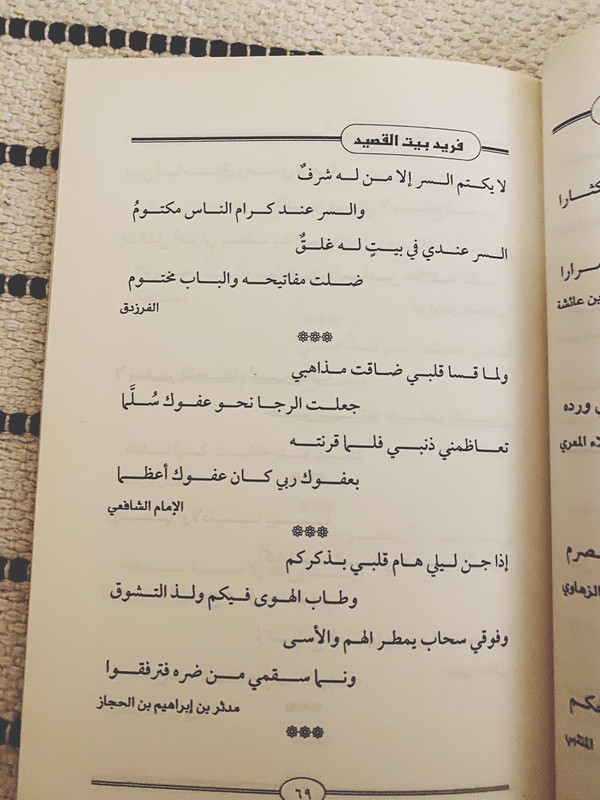 فريد بيت القصيد
لا يكتم السر إلا من له شرفٌ
والسر عند كرام الناس مكتومُ
السر عندي في بيتٍ له غلقٌ
ضلت مفاتيحه والباب مختوم
الفرزدق
ولما قسا قلبي ضاقت مذاهبي
جعلت الرجا نحو عفوك سُلَّما
تعاظمني ذنبي فلما قرنته
بعفوك ربي كان عفوك أعظما
الإمام الشافعي
إذا جن ليلي هام قلبي بذكركم
وطاب الهوى فيكم ولذ التشوق
وفوقي سحاب يمطر الهم والأسى
ونما سقمي من ضره فترفقوا
مدثر بن إبراهيم بن الحجاز
٦٩
كثارا
مرارا
بن عائشة
ورده
لاء المعري
صرم
الزهاوي
حكم